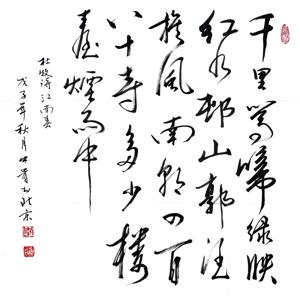 千里莺啼绿映
红水邨山郭酒
旗风南朝四百
八十寺多少楼
臺煙雨中
杜牧诗江南春
戊子年秋月 北京